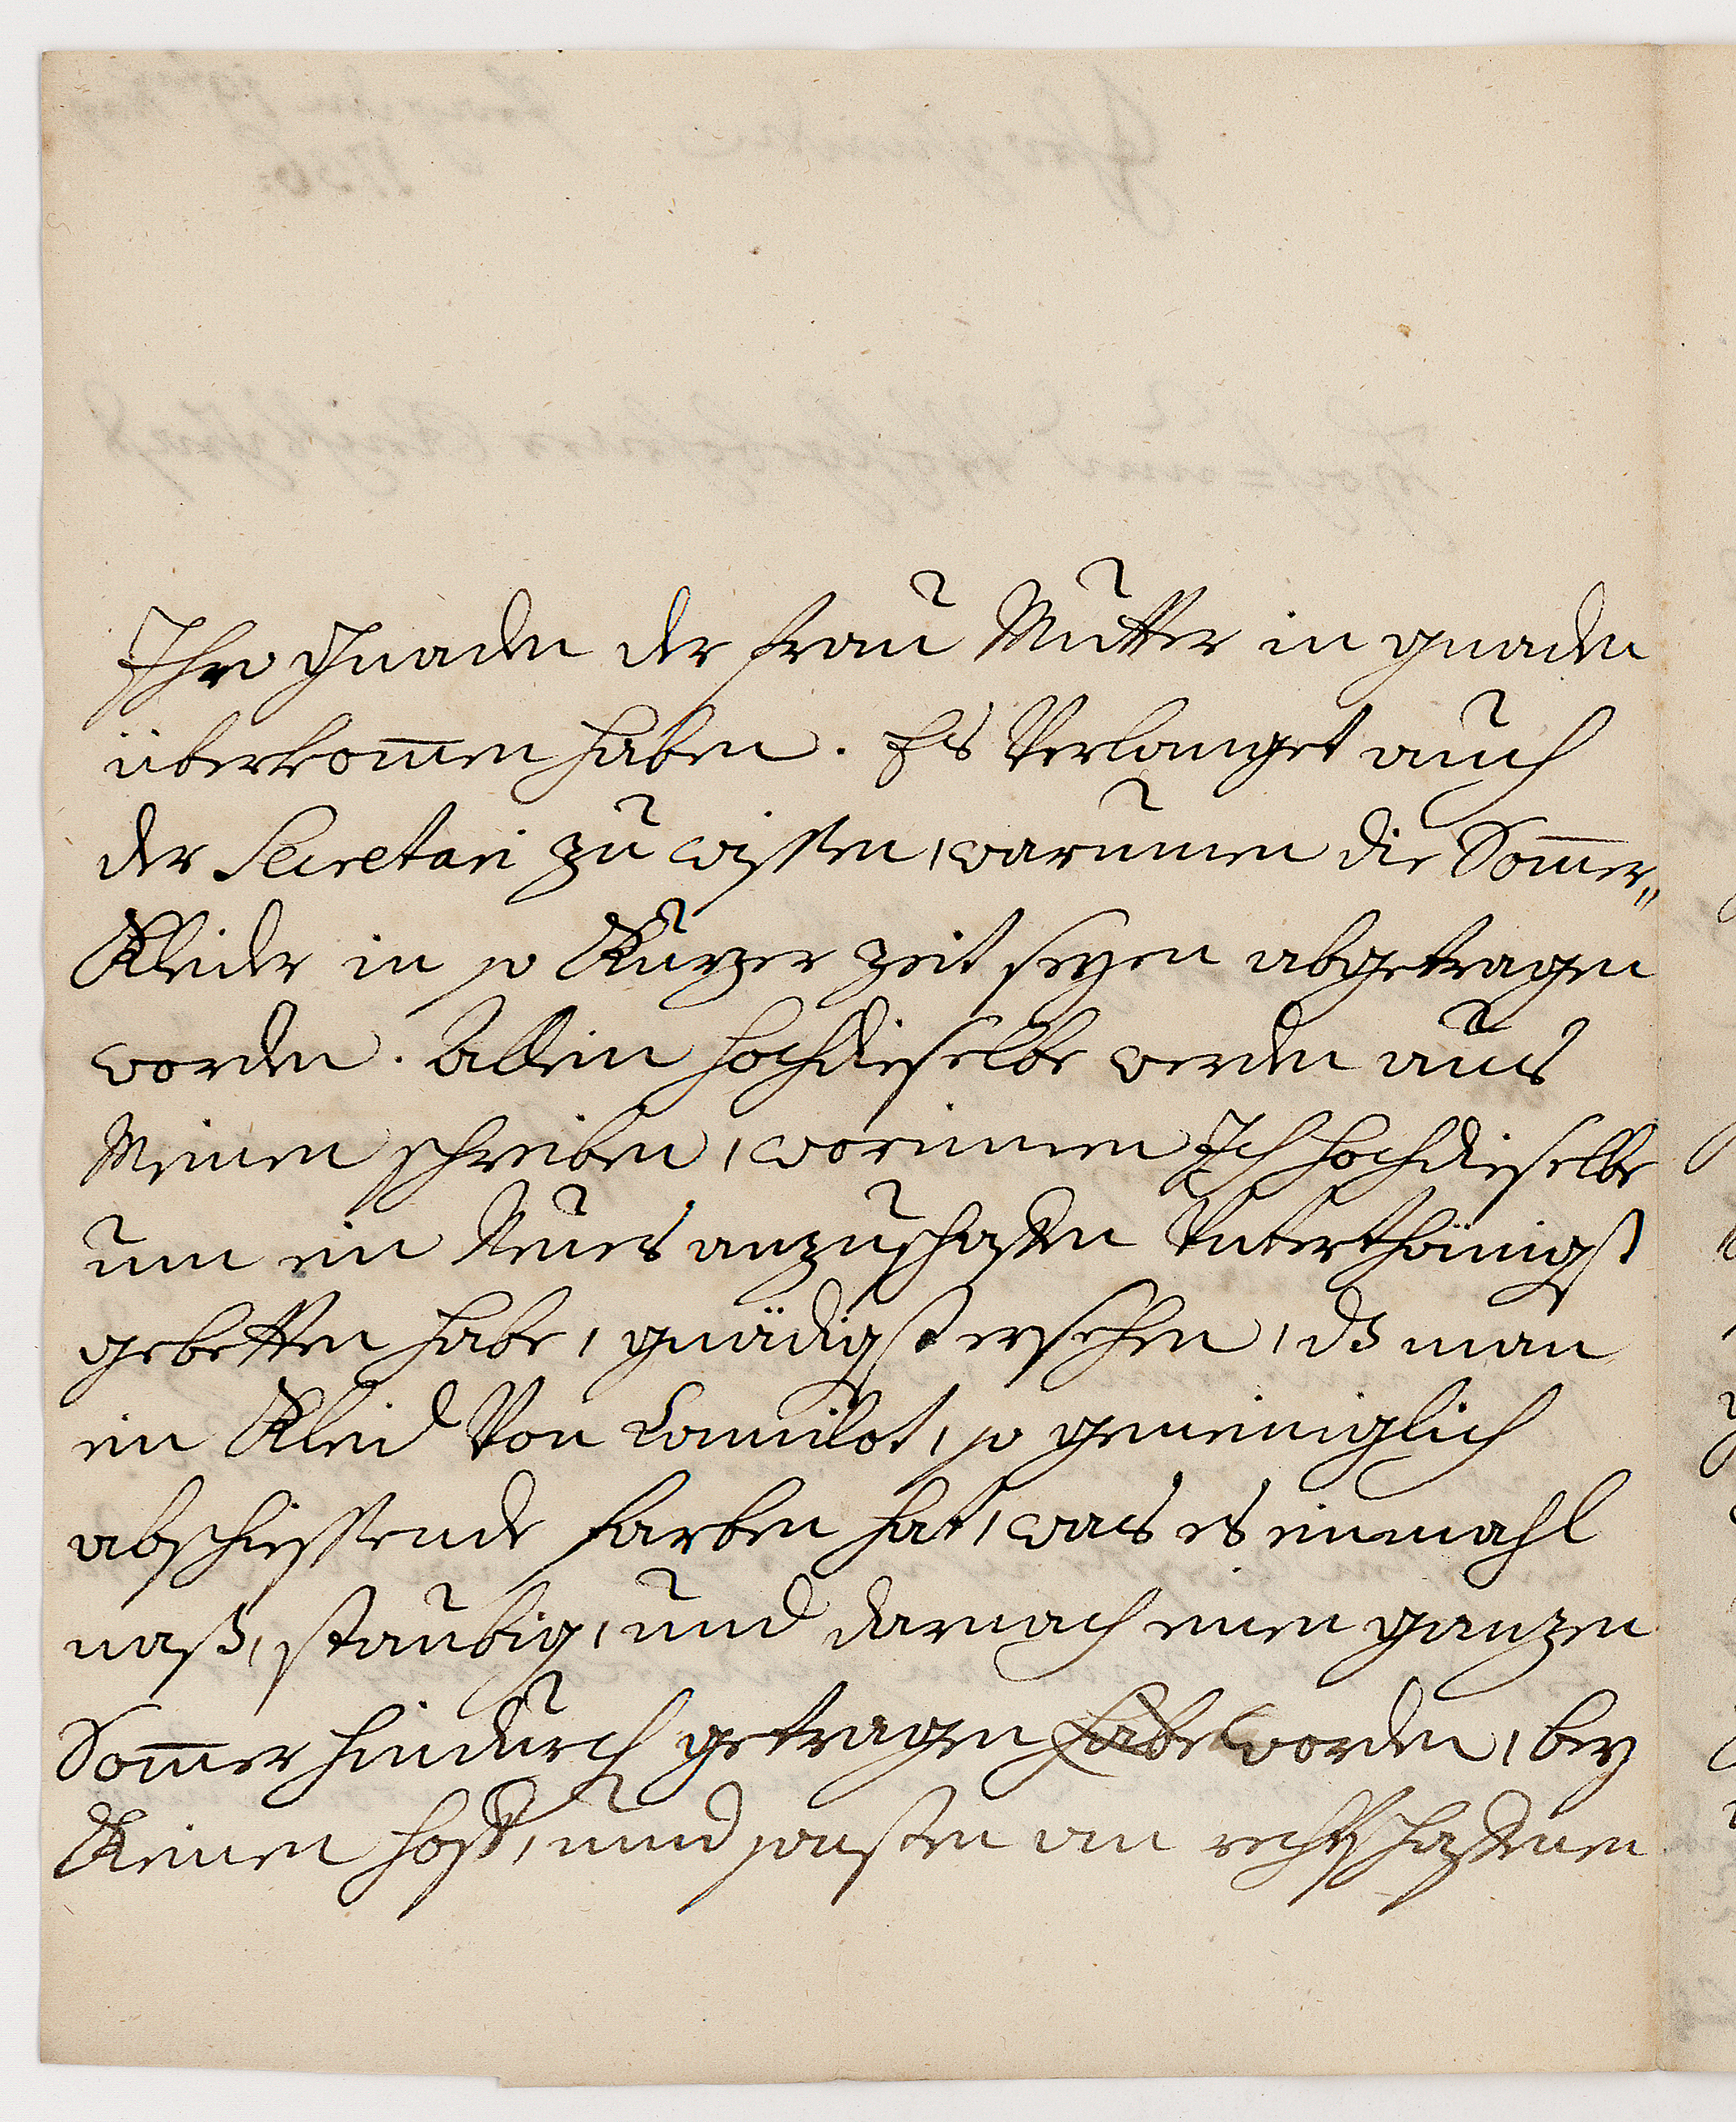 Ihro Gnaden der Frau Mutter in gnaden
überkom̅en haben. Es Verlanget auch
der Secretari zu wissen, warumen die Som̅er„
Kleider in so Kurzer zeit seyen abgetragen
worden. Allein hochdieselbe werden aus
Meinen schreiben, worinnen Ich hochdieselbe
um ein Neues anzuschaffen Unterthänigst
gebetten habe, gnädigst ersehen, ds man
ein Kleid Von Camilot, so gemeiniglich
abschiessende farben hat, was es einmahl
naß, staubig, und darnach einen ganzen
Som̅er hindurch getragen habe worden, bey
Keinen hoff, und sonsten an rechtschaffenen